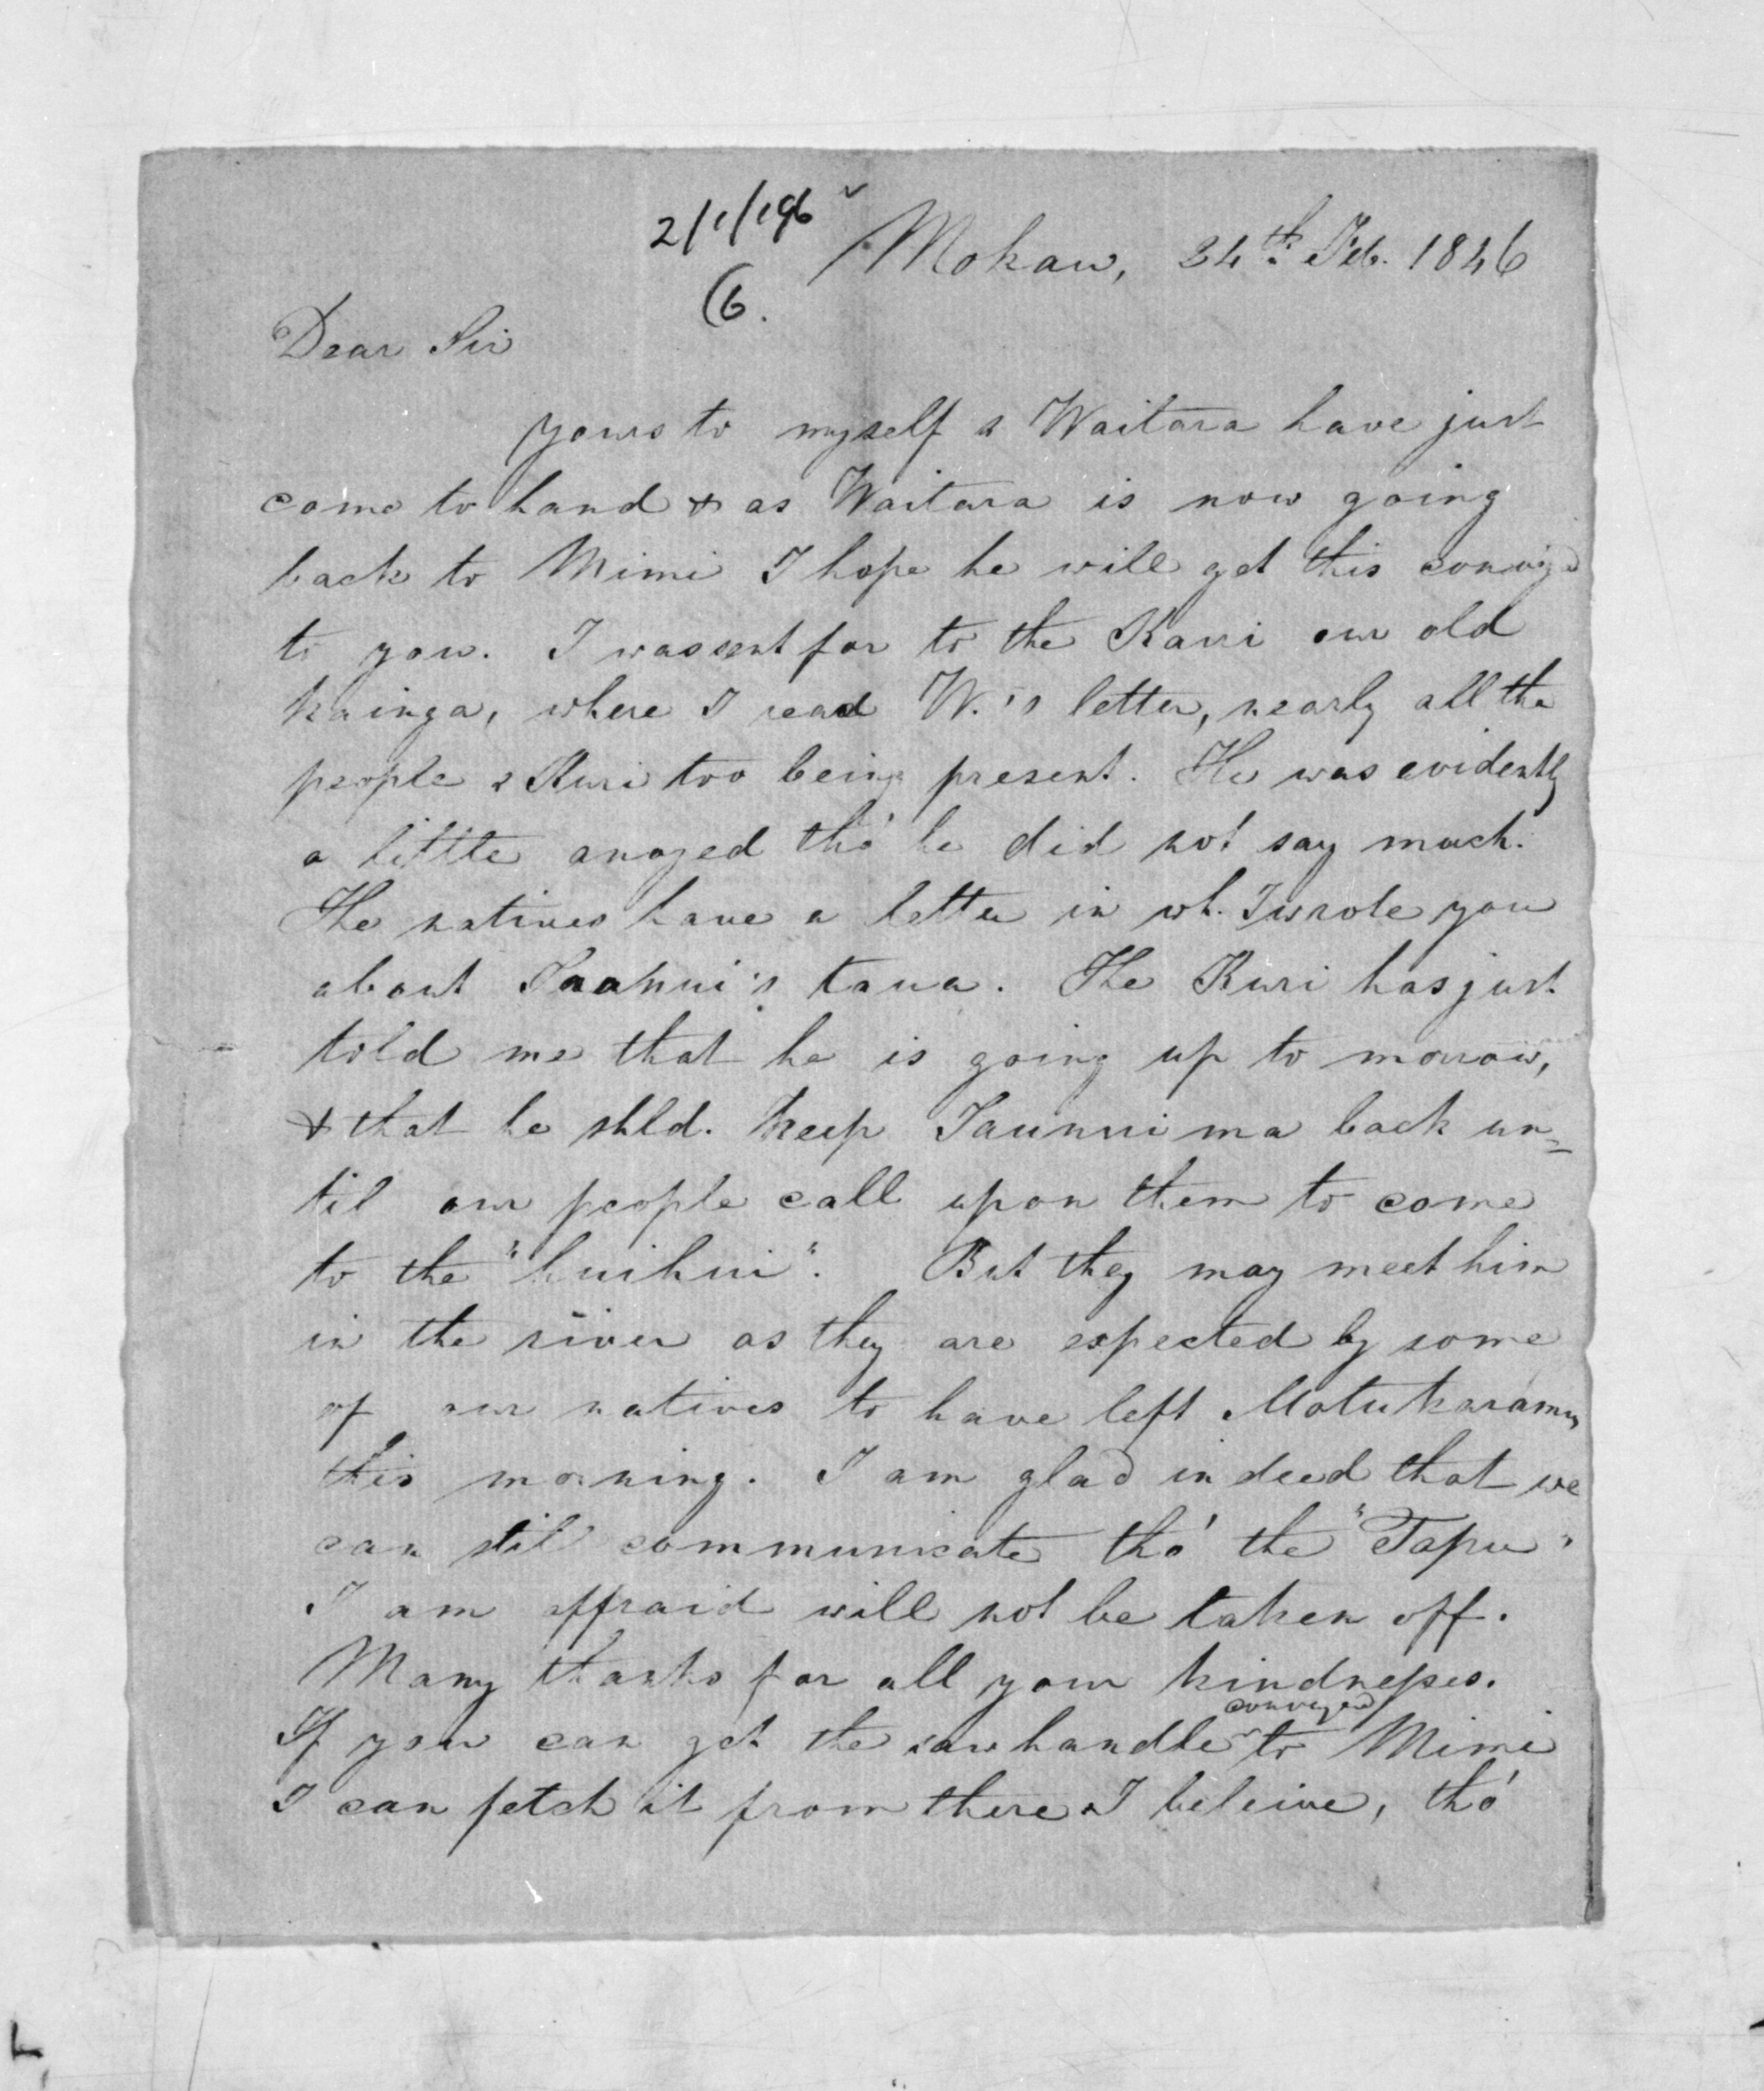 2/1/196
Mokau, 24th. Feb. 1846
(6.
Dear Sir
yours to myself & Waitara have just
come to hand & as Waitara is now going
back to Mimi I hope he will get this
to you. I was sent for to the Kauri our old
kainga, where I read W.'s letter, nearly all the
people & Kuri too being present. He was evidently
a little anoyed tho' he did not say much.
The natives have a letter in wh. I wrote you
about taua. The Kuri has just
told me that he is going up to morrow,
& that he shld. keep Taunui ma back un=
til our people call upon them to come
to the "huihui". But they may meet him
in the river as they are expected by some
of our natives to have left Motukaramu
this morning. I am glad indeed that we
can stil communicate tho' the "Tapu"
I am affraid will not be taken off.
Many thanks for all your kindnesses.
conveyed
If you can get the saw handle ^ to Mimi
I can fetch it from there I beleive, tho'